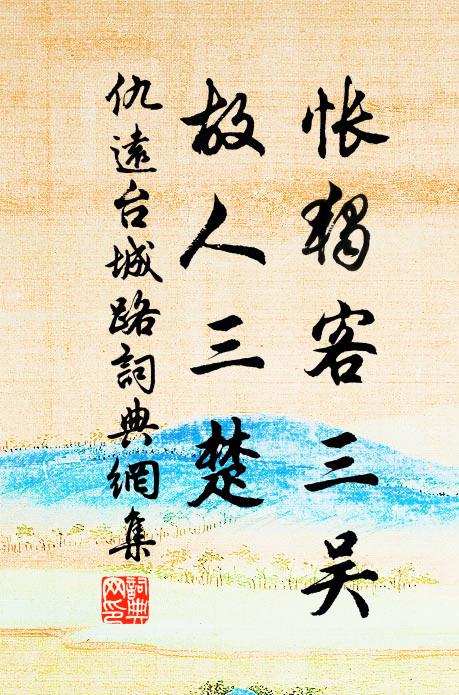 怅独客三吴
故人三楚
仇遠台城路詞典網集
詞典
网印